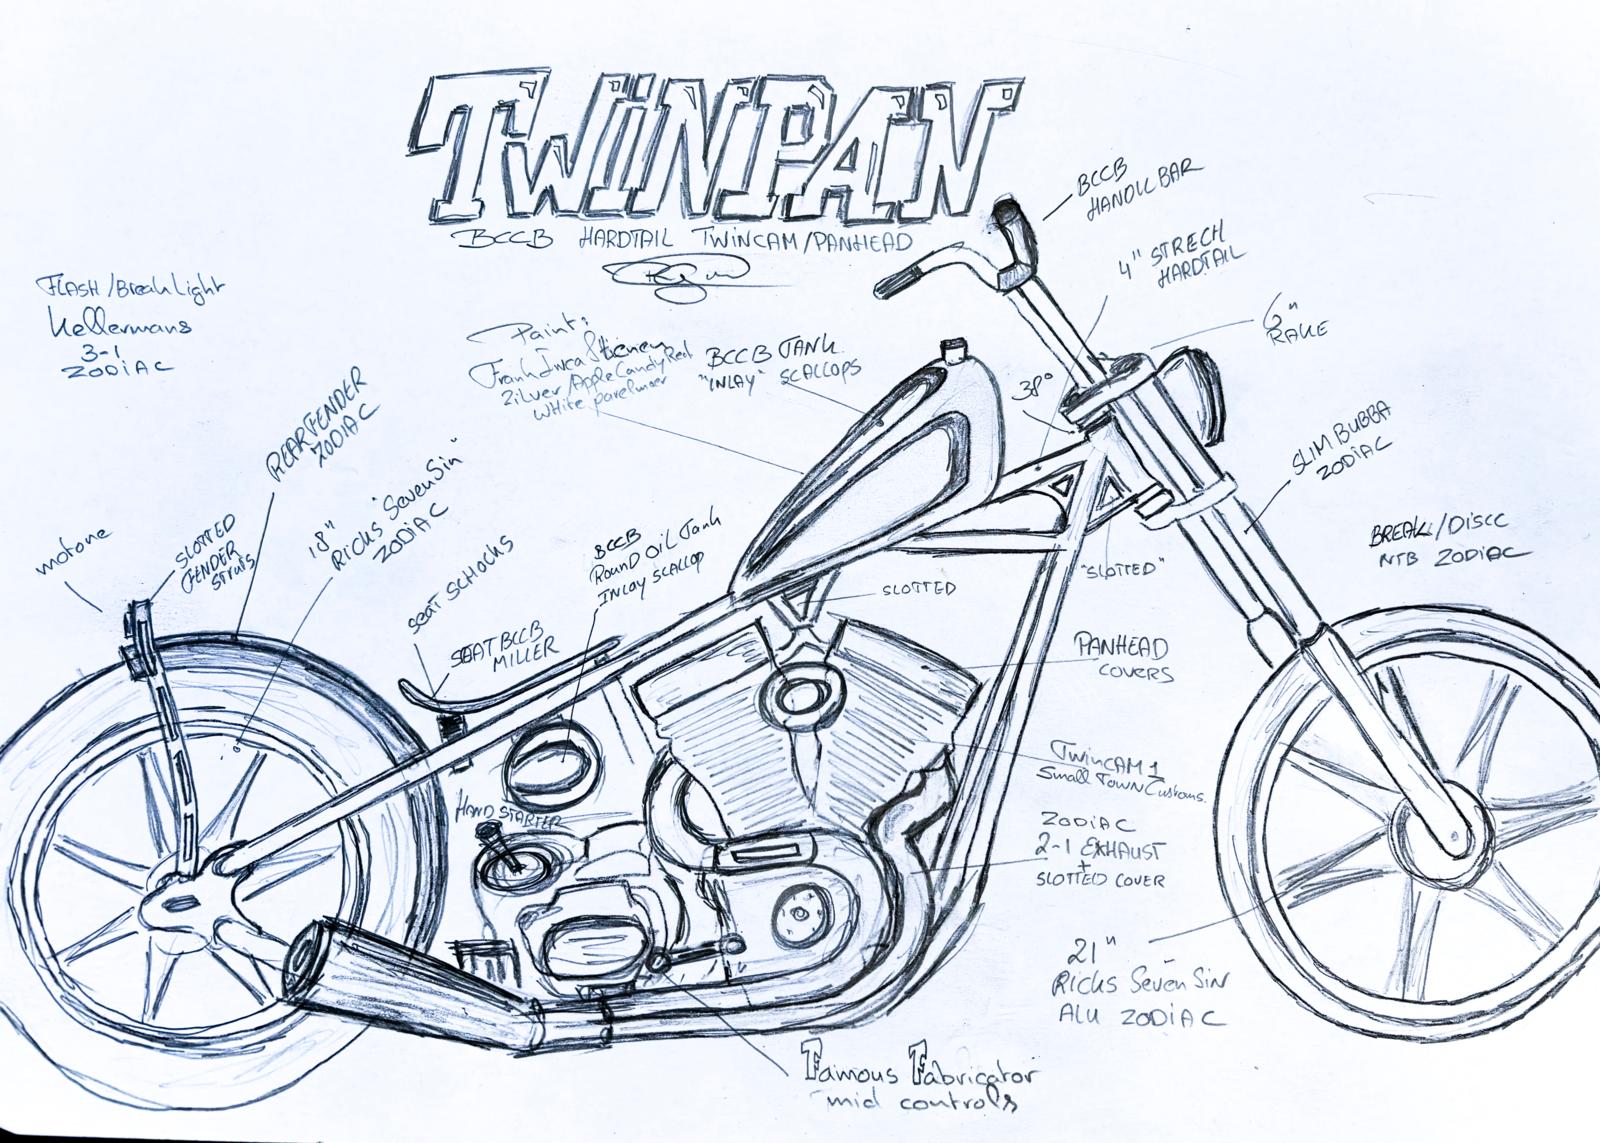 TWINPAN
BCCB HARDTAIL TWINCAM/PANHEAD
BCCB
HANDLL BAR
4" STRECH
HARDTAIL
6"
RAKE
38°
FLASH/Break Light
Kellermans
3-1
ZODiAC
Paint:
Frank Inca
Zilver/Apple Candy Red
White
BCCB TANK
"INLAY" SCALLOPS
REAR FENDER
ZODIAC
18"
Ricks "SevenSin"
ZODiAC
SLIM BUBBA
ZODiAC
motone
SLOTTED
FENDER
Struts
seat SCHOCKS
SEAT BCCB
MILLER
BCCB
Round Oil Tank
INlay SCAllop
SLOTTED
"SLOTTED"
BREAK/DISCC
NTB ZODiAC
PANHEAD
COVERS
TwinCAM 1
Small Town Customs.
HAND STARTER
ZODiAC
2-1 EXHAUST
+
SLOTTED COVER
21"
Ricks Seven SiN
ALU ZODiAC
Famous Fabricator
mid controls